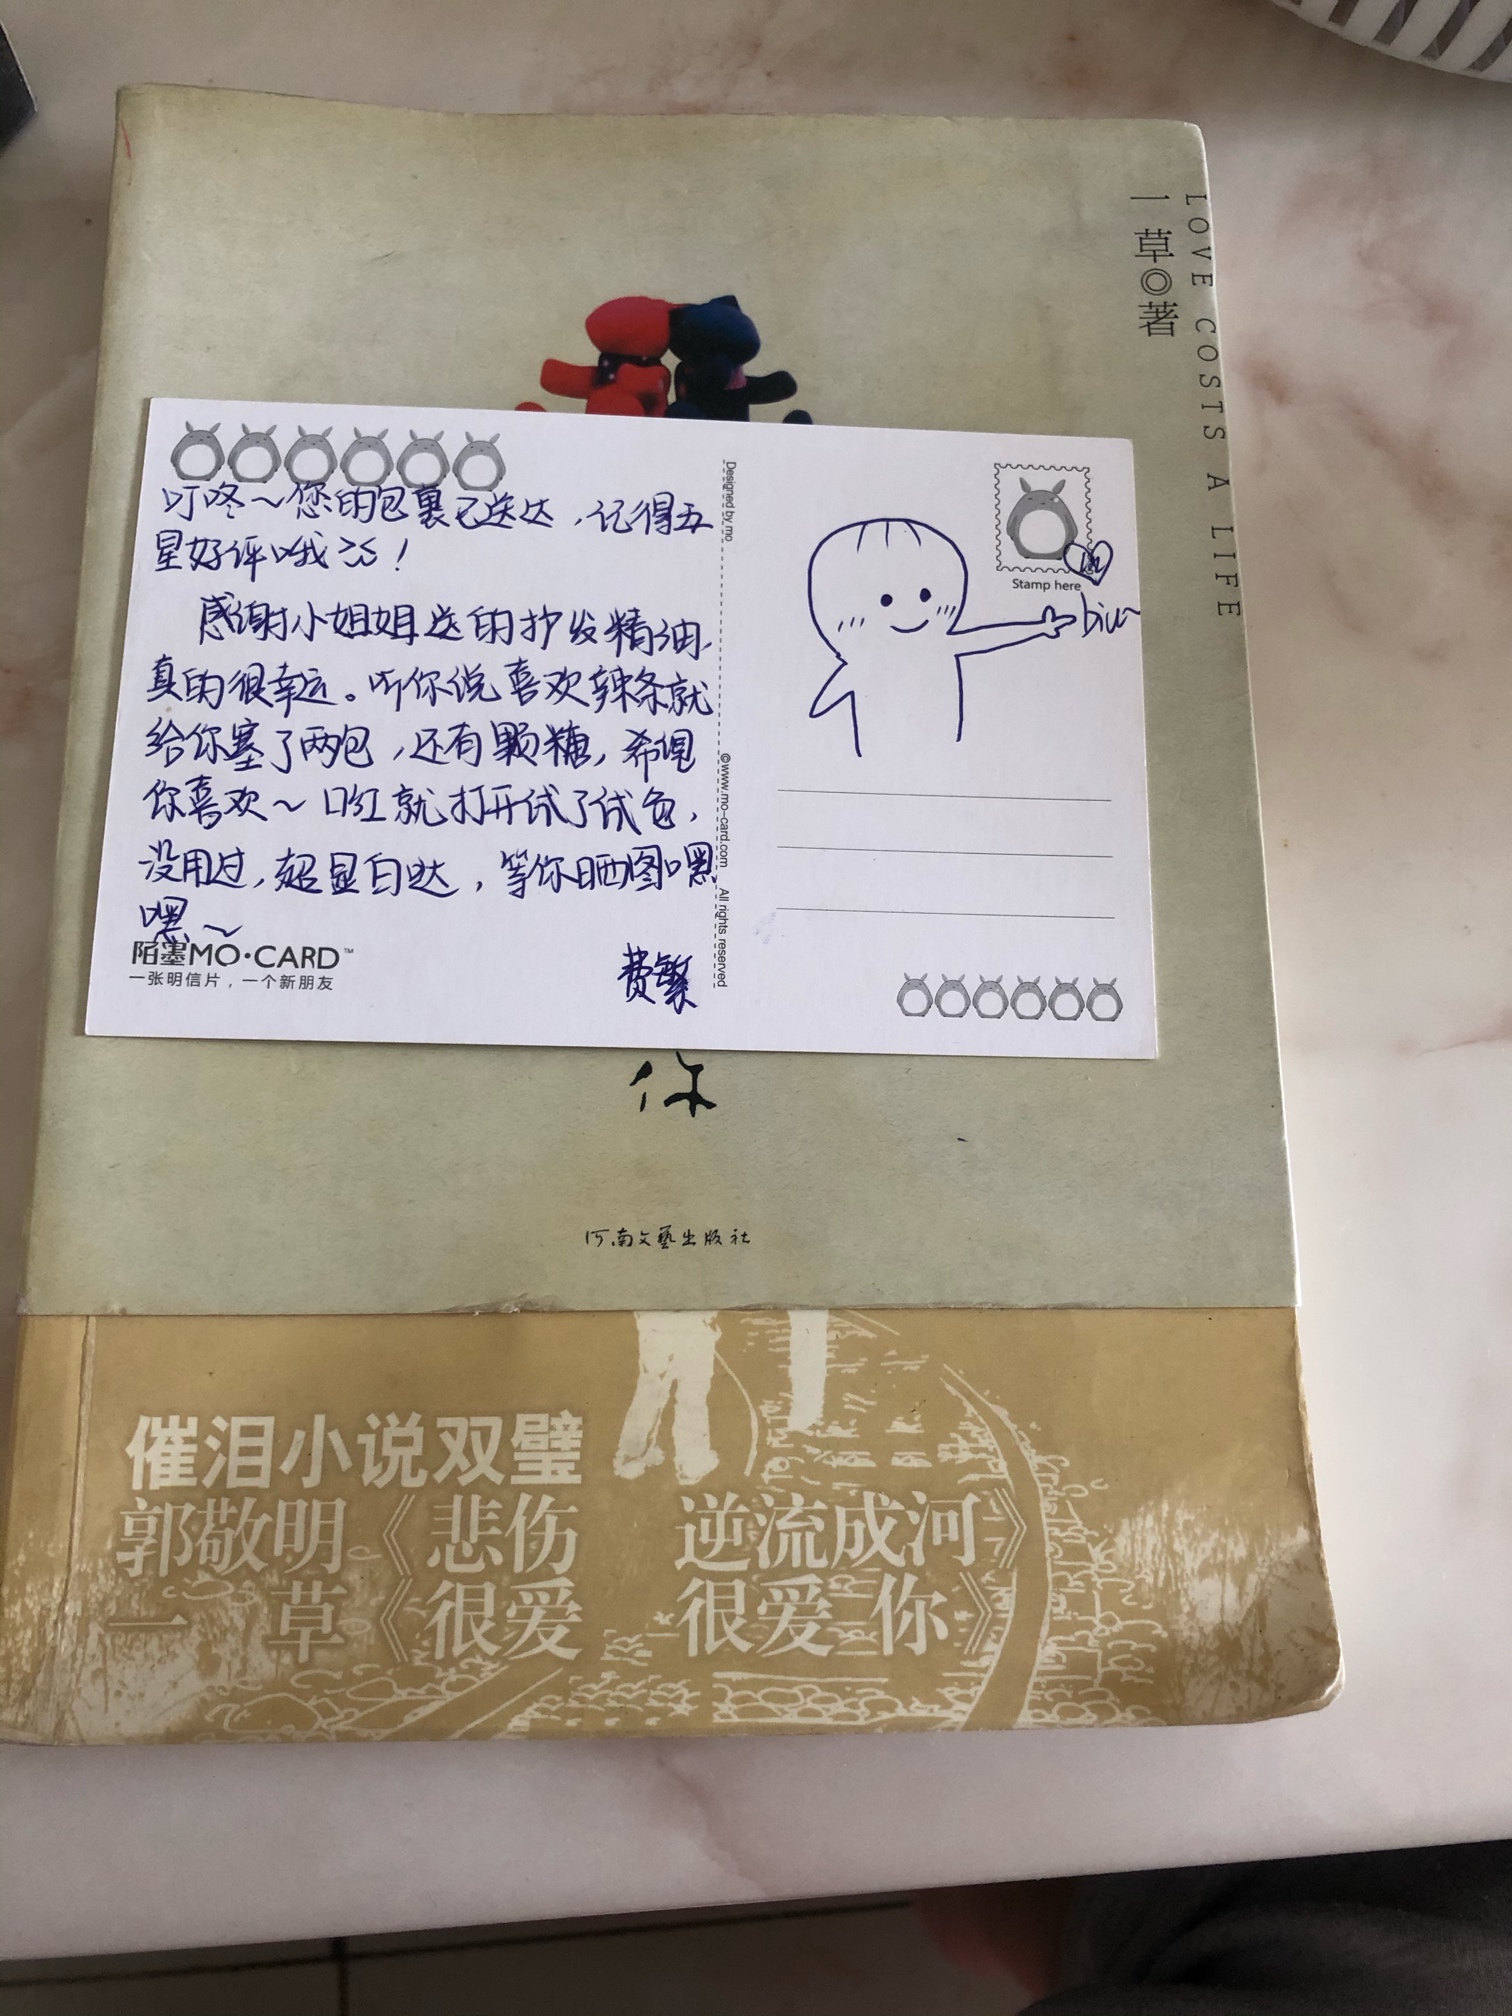 LOVE COSTS A LIFE
一草◎著
叮咚～您的包裹已送达，记得五
星好评哦
感谢小姐姐送的护发精油，
真的很幸运。听你说喜欢辣条就
给你塞了两包，还有颗糖，希望
你喜欢～口红就打开试了试色，
没用过，超显白哒，等你晒图嘿
嘿～
费繁
陌墨MO·CARD™
一张明信片，一个新朋友
Designed by mo
©www.mo-card.com
All rights reserved
Stamp here
biu~
你
河南文艺出版社
催泪小说双璧
郭敬明《悲伤 逆流成河》
一 草《很爱 很爱 你》